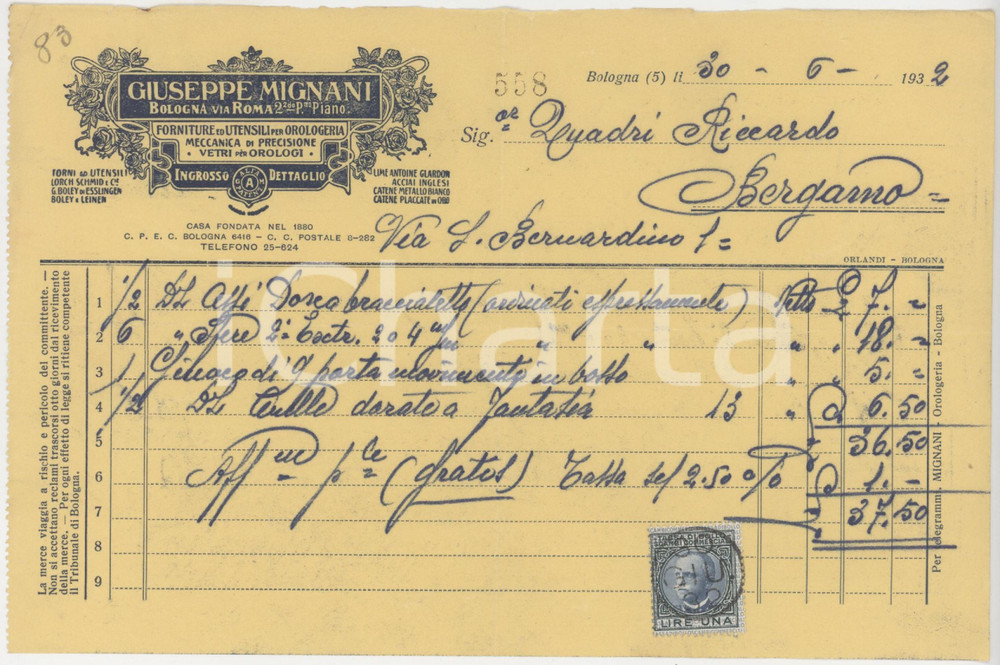 83
GIUSEPPE MIGNANI
BOLOGNA VIA ROMA 2
FORNITURE ED UTENSILI PER OROLOGERIA
MECCANICA DI PRECISIONE
VETRI PER OROLOGI
INGROSSO DETTAGLIO
ALTA
A
FORNI ED UTENSILI
LORCH SCHMID & C.
G. BOLEY DI ESSLINGEN
BOLEY & LEINEN
LIME ANTOINE GLARDON
ACCIAI INGLESI
CATENE METALLO BIANCO
CATENE PLACCATE IN ORO
CASA FONDATA NEL 1880
C. P. E. C. BOLOGNA 6416 - C. C. POSTALE 8-282
TELEFONO 25-624
558
Bologna (5) li 30 - 6 - 1932
Sig. Quadri Riccardo
Bergamo =
Via S. Bernardino 1 =
ORLANDI - BOLOGNA
La merce viaggia a rischio e pericolo del committente. —
Non si accettano reclami trascorsi otto giorni dal ricevimento
della merce. — Per ogni effetto di legge si ritiene competente
il Tribunale di Bologna.
1 1/2 DZ Assi Dosca braccialetto ( ) Netto 7. =
2 6 " 2ª Extr. 2 o 4 " " " 18. =
3 1 di 9 porta movimento in bosso " 5. =
4 1/2 DZ dorate a fantasia 13 " 6.50
5 36.50
6 (gratis) Tassa 2.50 % 1. -
7 37.50
8
9
LIRE UNA
Per telegrammi MIGNANI - Orologeria - Bologna
iCharta